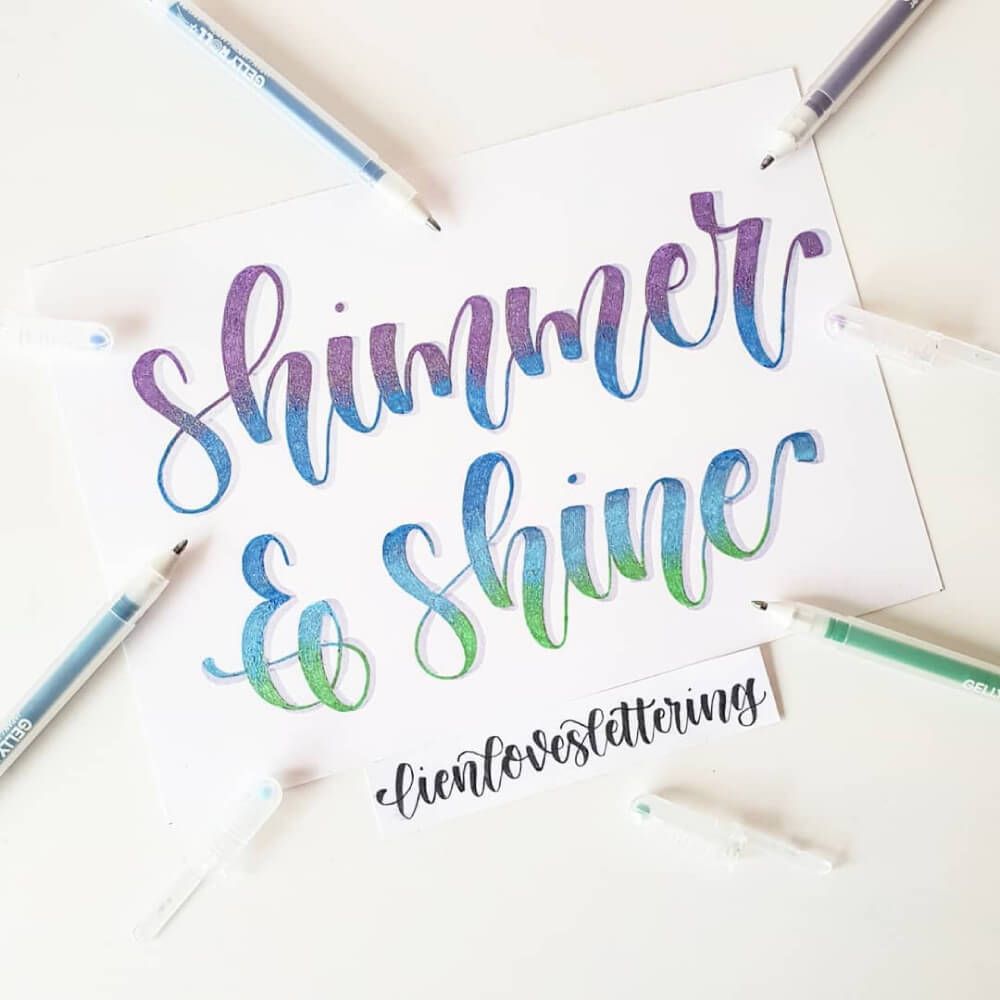 GELLY ROLL
shimmer
& shine
lienloveslettering
GELLY
GELLY